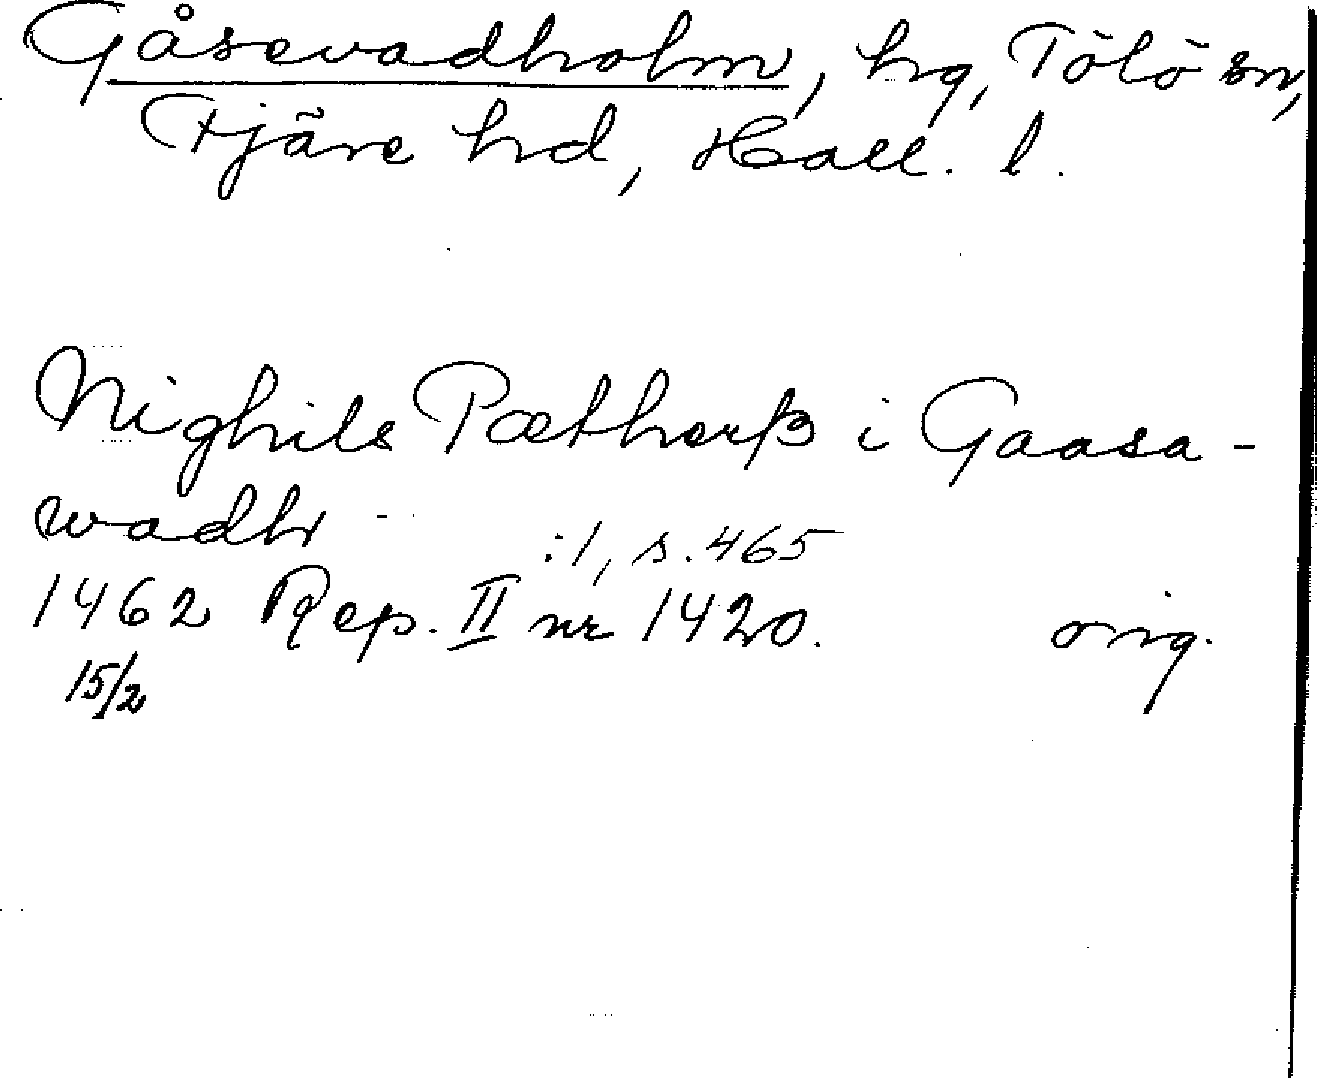 Gåsevadholm, hg, Tölö sn,
Fjäre hd, Hall. l.
Nighils Pætherß i Gaasa-
wadh
:1, s. 465
1462 Rep. II nr 1420. orig.
15/2